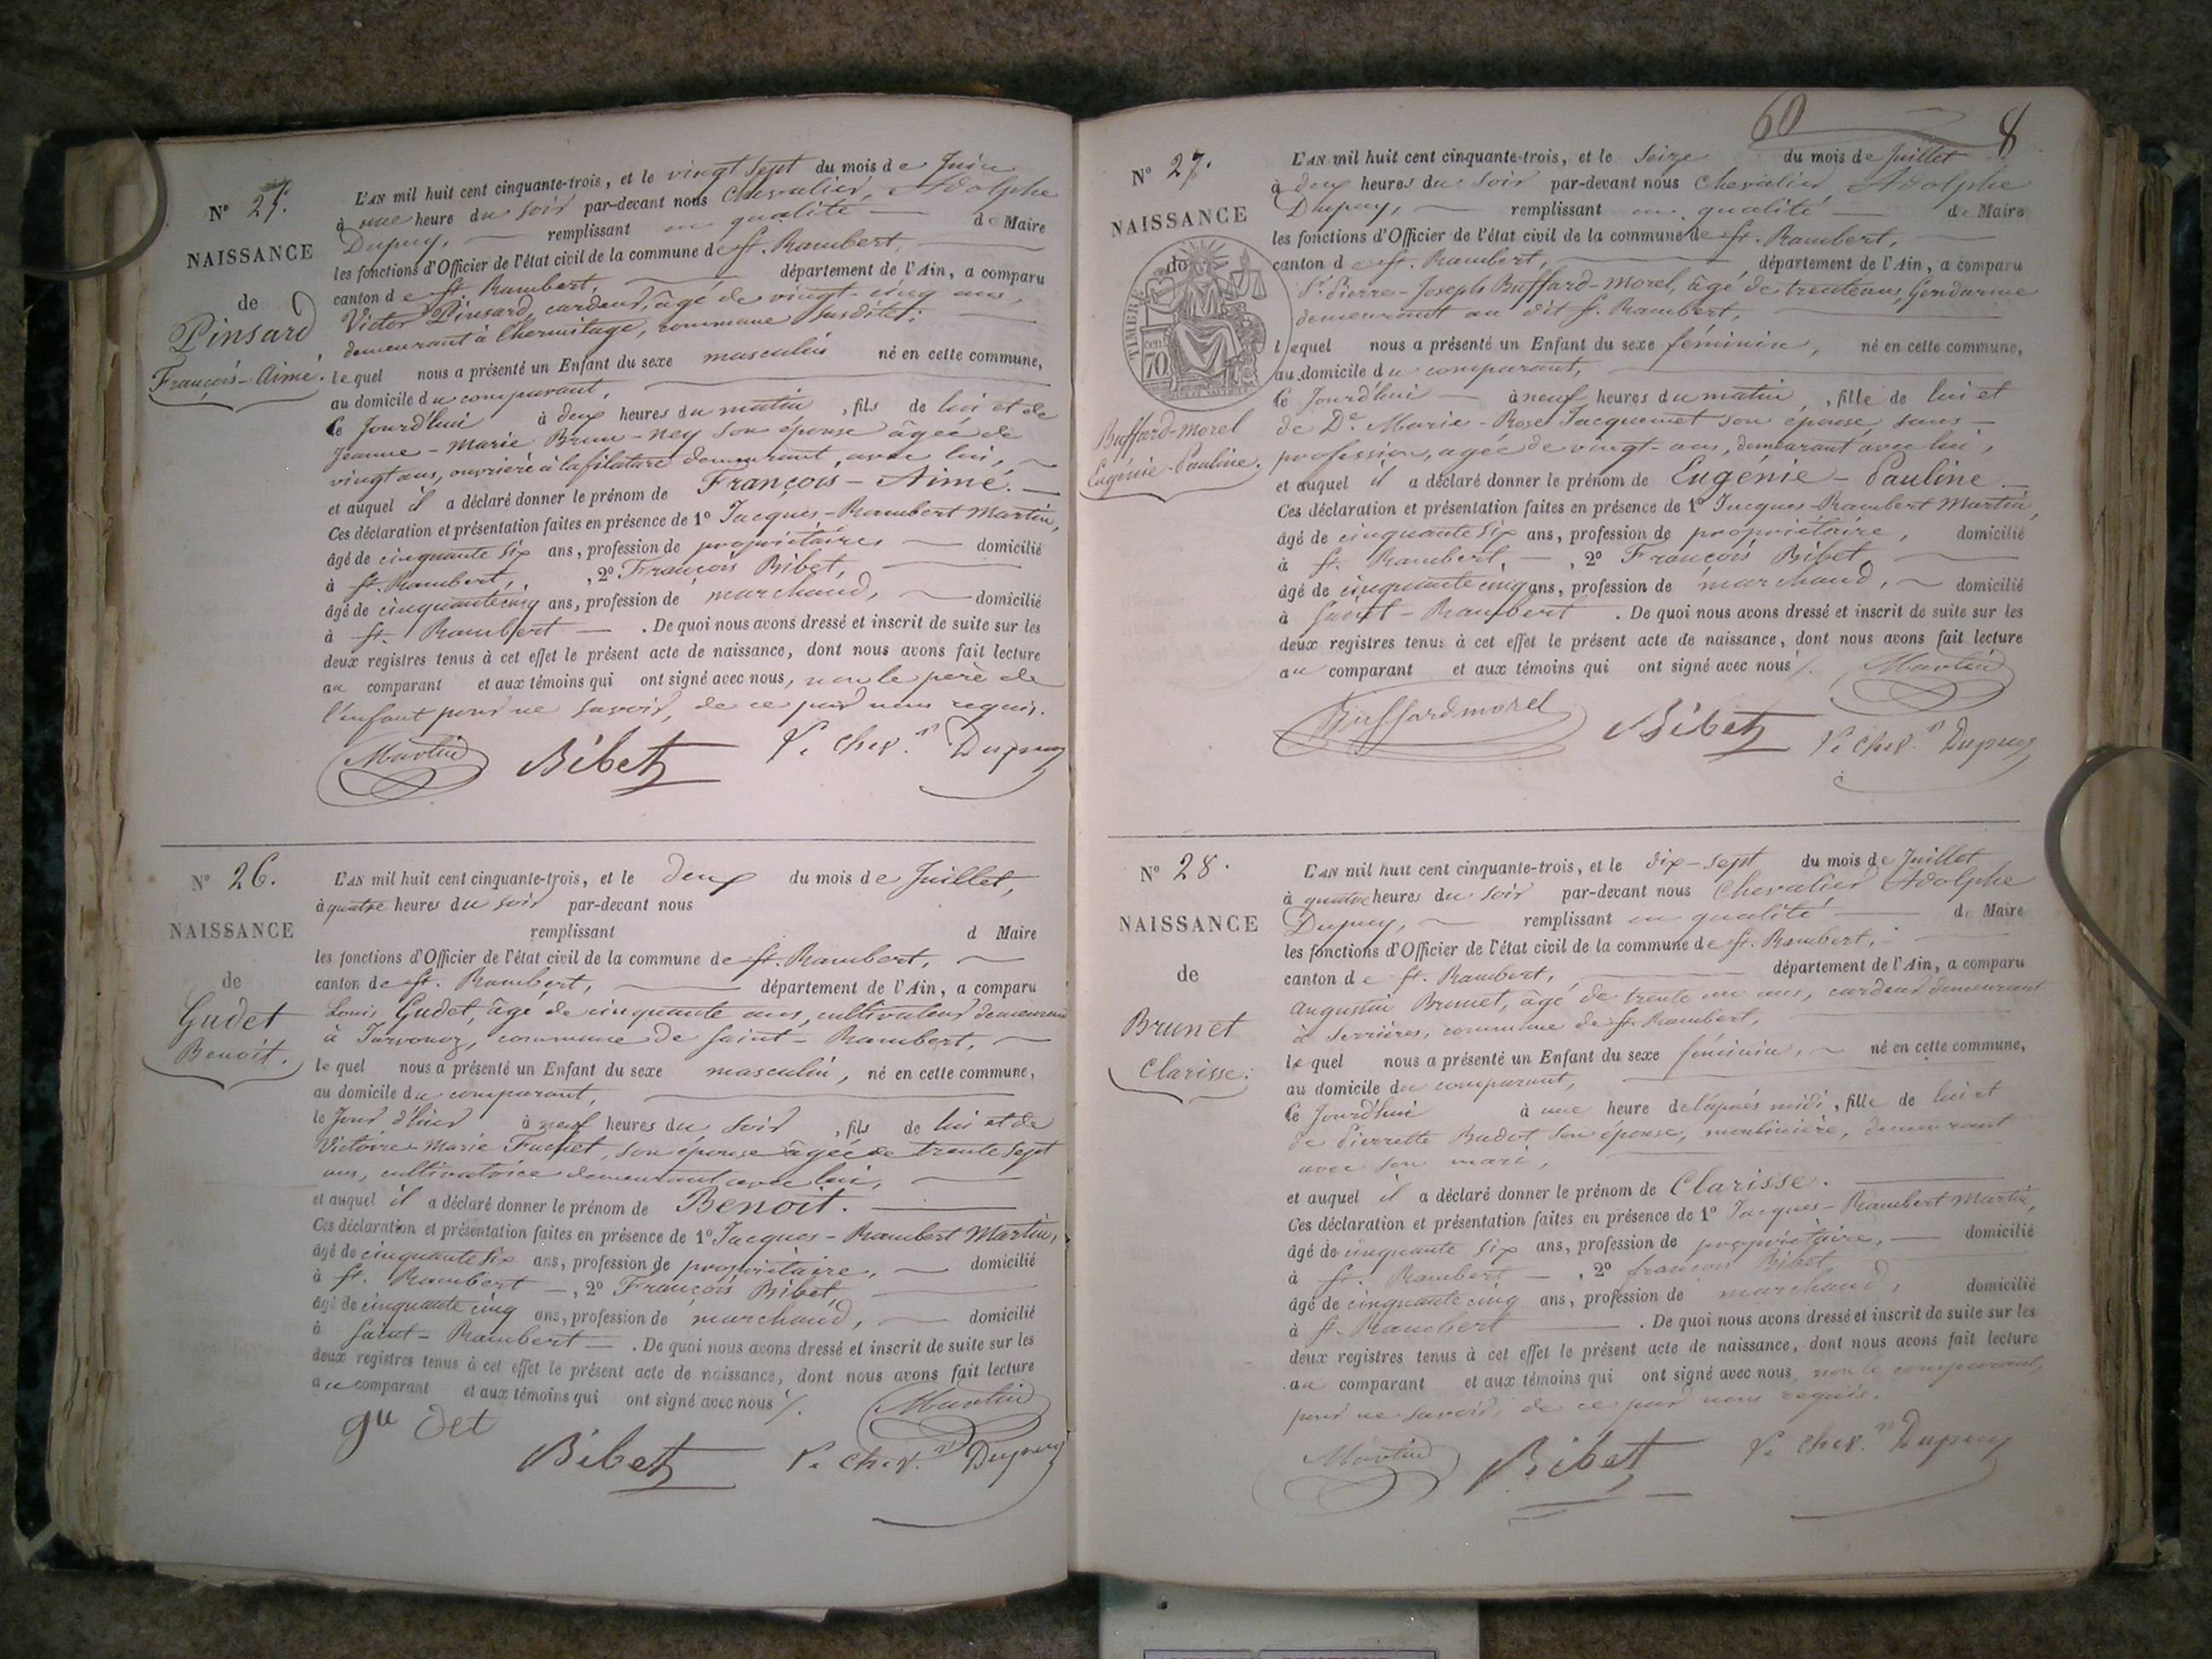 N° 25.
NAISSANCE
de
Pinsard
François-Aimé.
L'AN mil huit cent cinquante-trois, et le vingt sept du mois de Juin
à une heure du soir par-devant nous Chevalier, Adolphe
Dupuy, remplissant en qualité de Maire
les fonctions d'Officier de l'état civil de la commune de St. Rambert,
canton de St. Rambert, département de l'Ain, a comparu
Victor Pinsard, cardeur, âgé de vingt-cinq ans,
demeurant à l'hermitage, commune susdite;
lequel nous a présenté un Enfant du sexe masculin né en cette commune,
au domicile du comparant,
Ce Jourd'hui à deux heures du matin, fils de lui et de
Jeanne-Marie Brun-Ney son épouse âgée de
vingt ans, ouvrière à la filature demeurant avec lui,
et auquel il a déclaré donner le prénom de François-Aimé.
Ces déclaration et présentation faites en présence de 1° Jacques-Rambert Martin,
âgé de cinquante six ans, profession de propriétaire, domicilié
à St. Rambert, , 2° François Bibet,
âgé de cinquante cinq ans, profession de marchand, domicilié
à St. Rambert . De quoi nous avons dressé et inscrit de suite sur les
deux registres tenus à cet effet le présent acte de naissance, dont nous avons fait lecture
au comparant et aux témoins qui ont signé avec nous, non le père de
l'enfant pour ne savoir, de ce par nous requis.
Martin Bibet Chev.r Dupuy
N° 26.
NAISSANCE
de
Gudet
Benoit.
L'AN mil huit cent cinquante-trois, et le deux du mois de Juillet,
à quatre heures du soir par-devant nous
remplissant d Maire
les fonctions d'Officier de l'état civil de la commune de St. Rambert,
canton de St. Rambert, département de l'Ain, a comparu
Louis Gudet, âgé de cinquante ans, cultivateur demeurant
à Javornoz, commune de Saint-Rambert,
lequel nous a présenté un Enfant du sexe masculin, né en cette commune,
au domicile du comparant,
le Jour d'hier à neuf heures du soir, fils de lui et de
Victoire Marie son épouse âgée de trente sept
ans, cultivatrice demeurant avec lui,
et auquel il a déclaré donner le prénom de Benoit.
Ces déclaration et présentation faites en présence de 1° Jacques-Rambert Martin,
âgé de cinquante six ans, profession de propriétaire, domicilié
à St. Rambert , 2° François Bibet,
âgé de cinquante cinq ans, profession de marchand, domicilié
à Saint-Rambert . De quoi nous avons dressé et inscrit de suite sur les
deux registres tenus à cet effet le présent acte de naissance, dont nous avons fait lecture
au comparant et aux témoins qui ont signé avec nous /.
gu det Martin
Bibet Chev.r Dupuy
60 8
N° 27.
NAISSANCE
de
TIMBRE
70 cen
Buffard-Morel
Eugénie-Pauline.
L'AN mil huit cent cinquante-trois, et le Seize du mois de Juillet
à deux heures du soir par-devant nous Chevalier Adolphe
Dupuy, remplissant en qualité de Maire
les fonctions d'Officier de l'état civil de la commune de St. Rambert,
canton de St. Rambert, département de l'Ain, a comparu
Sr. Pierre-Joseph Buffard-Morel, âgé de trente ans, Gendarme
demeurant au dit St. Rambert,
lequel nous a présenté un Enfant du sexe féminin, né en cette commune,
au domicile du comparant,
Ce Jourd'hui à neuf heures du matin, fille de lui et
de De. Marie-Rose Jacquemet son épouse sans
profession, agée de vingt-ans, demeurant avec lui,
et auquel il a déclaré donner le prénom de Eugénie-Pauline
Ces déclaration et présentation faites en présence de 1° Jacques-Rambert Martin,
âgé de cinquante six ans, profession de propriétaire, domicilié
à St. Rambert, , 2° François Bibet
âgé de cinquante cinq ans, profession de marchand, domicilié
à Saint-Rambert . De quoi nous avons dressé et inscrit de suite sur les
deux registres tenus à cet effet le présent acte de naissance, dont nous avons fait lecture
au comparant et aux témoins qui ont signé avec nous /. Martin
Buffardmorel Bibet Chev.r Dupuy
N° 28.
NAISSANCE
de
Brunet
Clarisse.
L'AN mil huit cent cinquante-trois, et le dix-sept du mois de Juillet
à quatre heures du soir par-devant nous Chevalier Adolphe
Dupuy, remplissant en qualité de Maire
les fonctions d'Officier de l'état civil de la commune de St. Rambert,
canton de St. Rambert, département de l'Ain, a comparu
Augustin Brunet, âgé de trente un ans, cardeur demeurant
à Serrières, commune de St. Rambert,
lequel nous a présenté un Enfant du sexe féminin, né en cette commune,
au domicile du comparant,
Ce Jourd'hui à une heure de l'après midi, fille de lui et
de Pierrette Budet son épouse, moulinière, demeurant
avec son mari,
et auquel il a déclaré donner le prénom de Clarisse.
Ces déclaration et présentation faites en présence de 1° Jacques-Rambert Martin,
âgé de cinquante six ans, profession de propriétaire, domicilié
à St. Rambert , 2° françois Bibet,
âgé de cinquante cinq ans, profession de marchand, domicilié
à St. Rambert . De quoi nous avons dressé et inscrit de suite sur les
deux registres tenus à cet effet le présent acte de naissance, dont nous avons fait lecture
au comparant et aux témoins qui ont signé avec nous non le comparant,
pour ne savoir, de ce par nous requis.
Martin Bibet Chev.r Dupuy